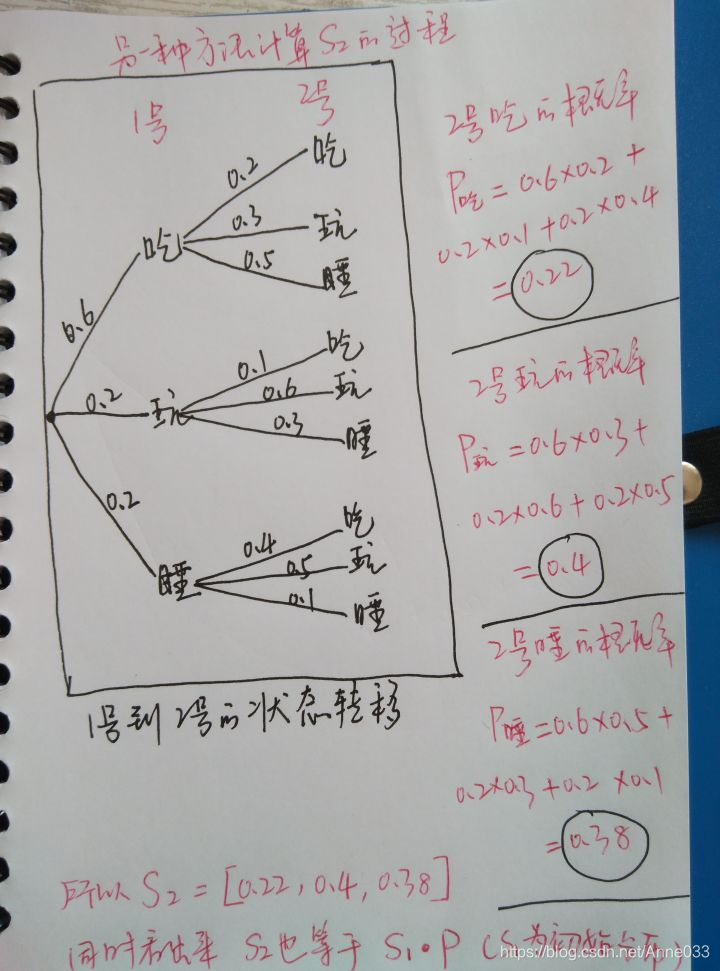 另一种方法计算S2的过程
1号
2号
0.6
0.2
0.2
吃
0.2
吃
0.3
玩
0.5
睡
玩
0.1
吃
0.6
玩
0.3
睡
睡
0.4
吃
0.5
玩
0.1
睡
1号到2号的状态转移
2号吃的概率
P吃 = 0.6×0.2 +
0.2×0.1 + 0.2×0.4
= 0.22
2号玩的概率
P玩 = 0.6×0.3 +
0.2×0.6 + 0.2×0.5
= 0.4
2号睡的概率
P睡 = 0.6×0.5 +
0.2×0.3 + 0.2×0.1
= 0.38
所以 S2 = [0.22, 0.4, 0.38]
同时看出来 S2也等于 S1·P (
https://blog.csdn.net/Anne033